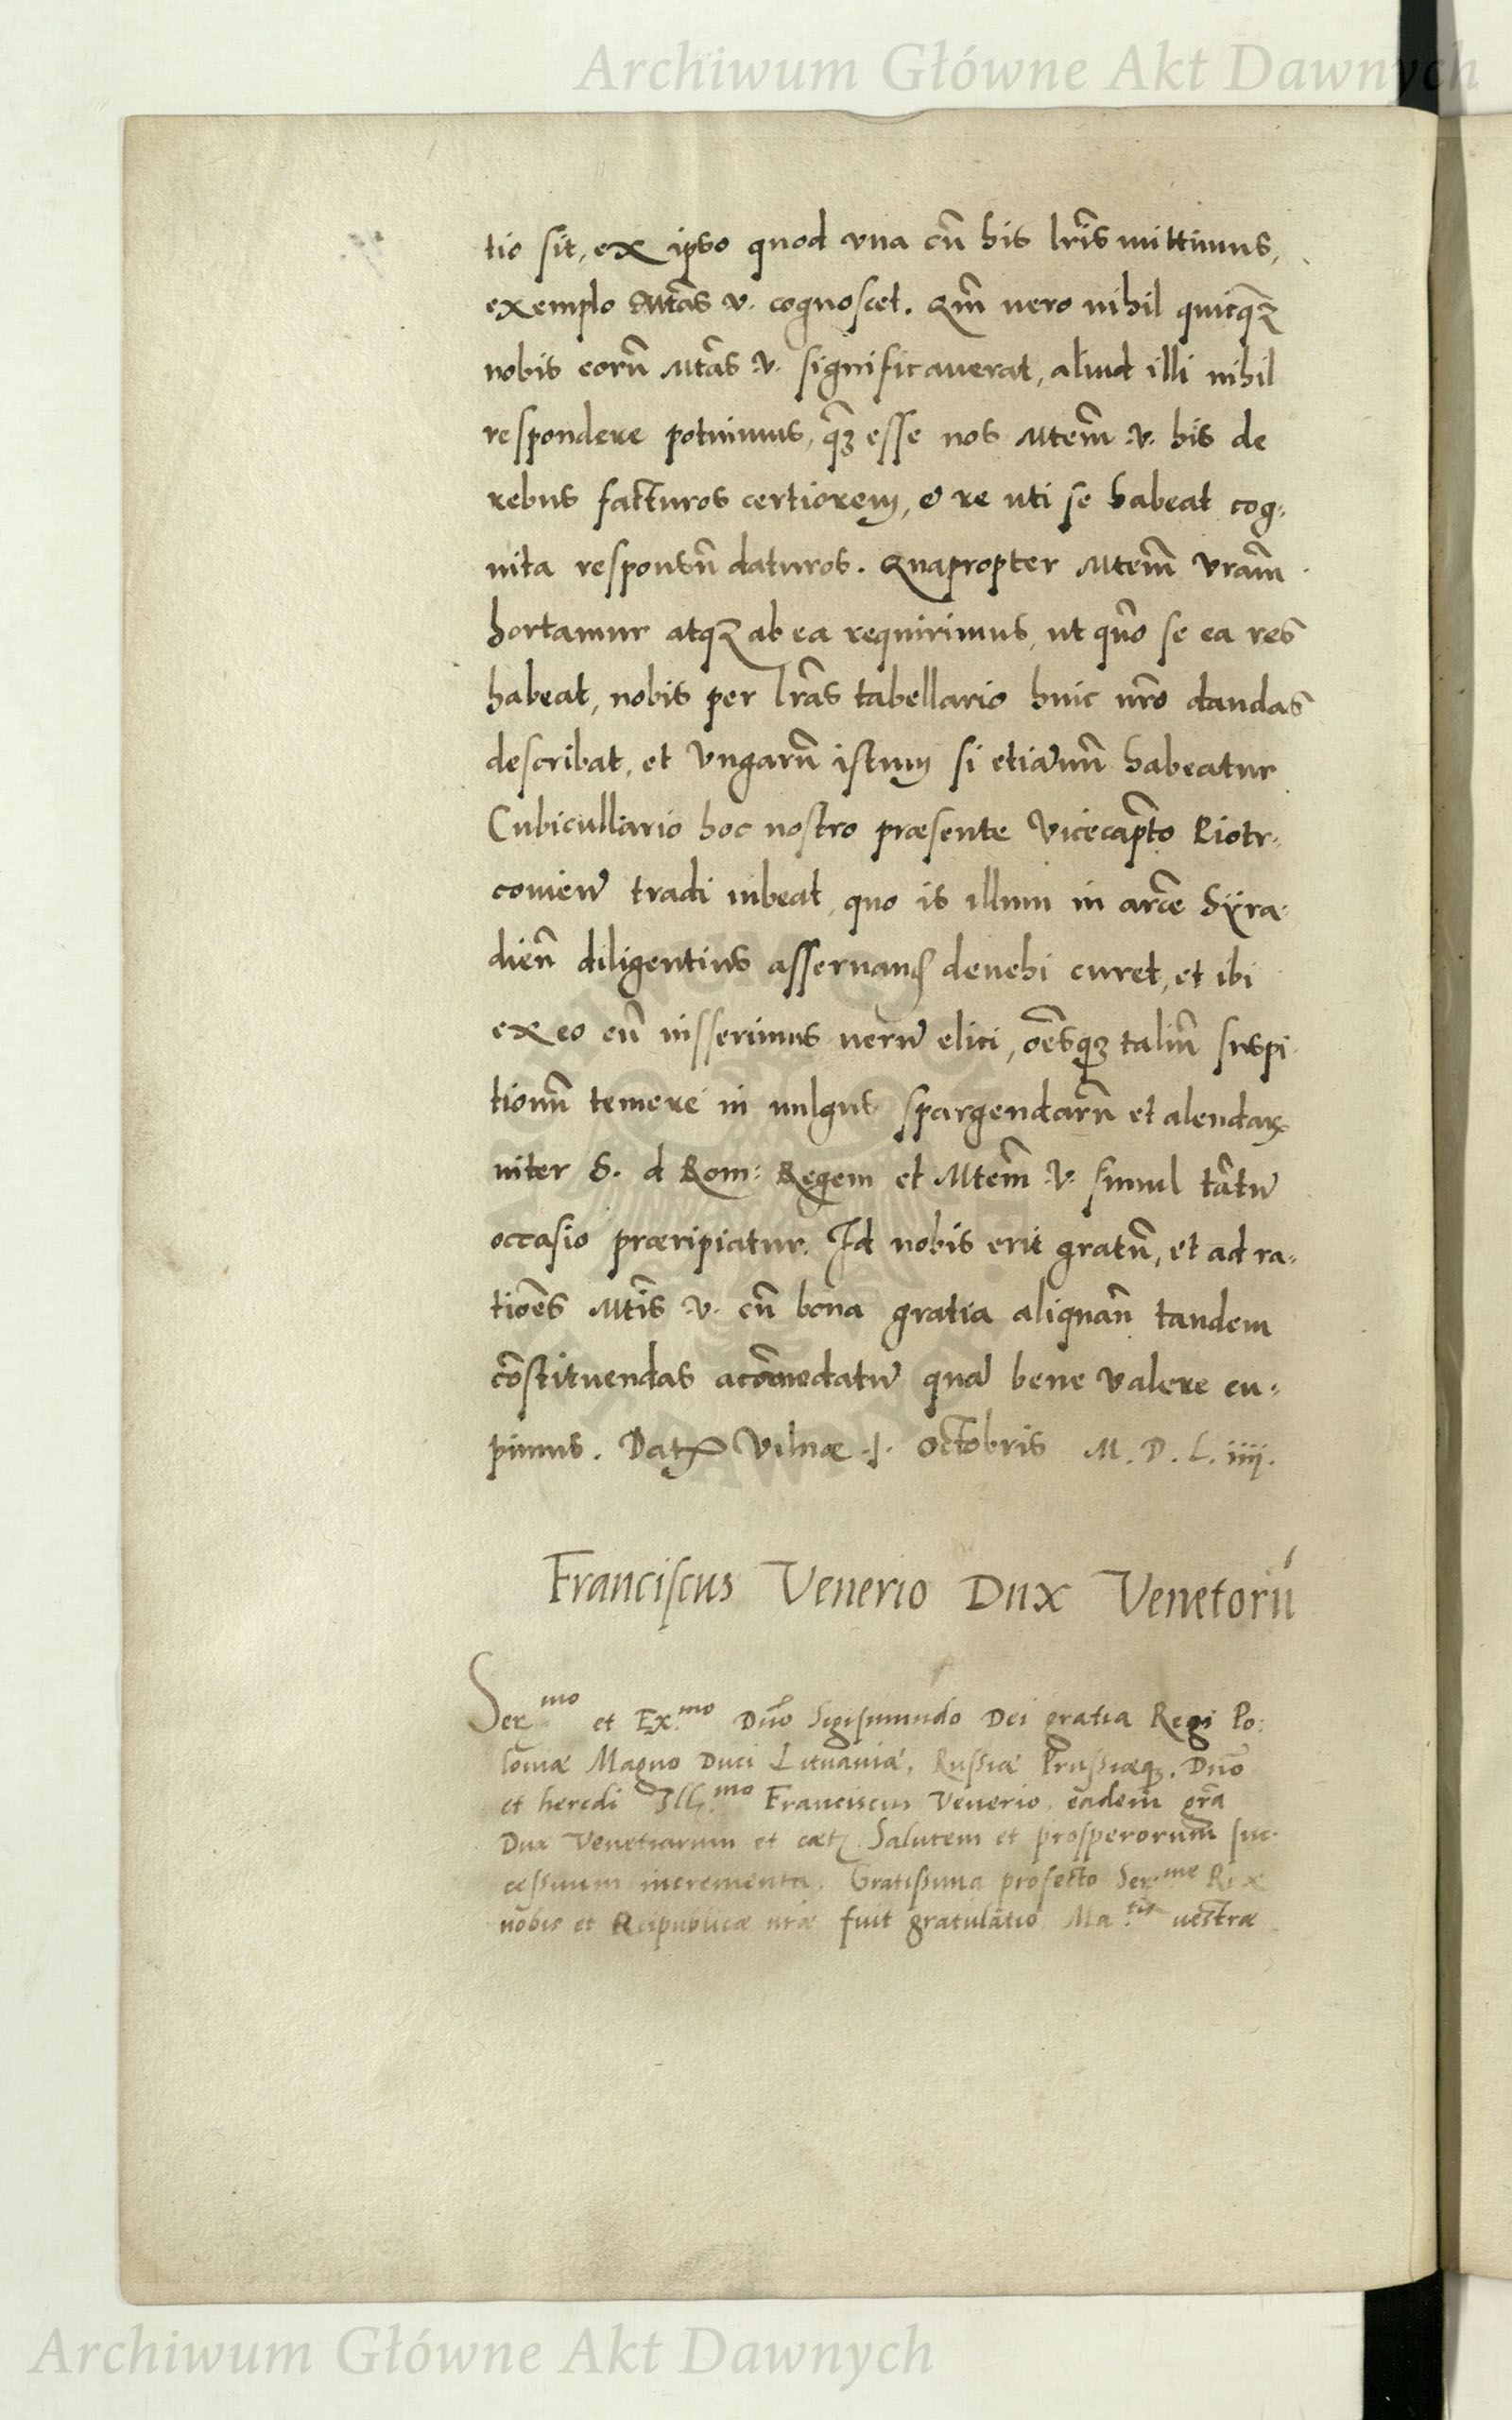 Archiwum Główne Akt Dawnych
tio sit, ex ipso quod vna cũ his lr̃is mittimus,
exemplo Mtãs v. cognoscet. Qm̃ uero nihil quicqȝ
nobis eorũ Mtãs v. significauerat, aliud illi nihil
respondere potuimus, q̃ȝ esse nos Mtem̃ v. his de
rebus facturos certiorem, & re uti se habeat cog-
nita responsũ daturos. Quapropter Mtem̃ vram̃
hortamur atqȝ ab ea requirimus, ut quõ se ea res
habeat, nobis per lrãs tabellario huic nr̃o dandas
describat, et Vngarũ istum si etiãnũ habeatur
Cubiculario hoc nostro præsente Vicecap̃to Piotr-
couien̄ tradi iubeat, quo is illum in arc̃e Syra-
dieñ diligentius asseruand̄ deuehi curet, et ibi
ex eo cũ iusserimus uerũ elici, oẽsqȝ taliũ suspi-
tionũ temere in uulgus spargendarũ et alendarꝝ
inter S. d Rom: Regem et Mtem̃ v. simul tãtũ
occasio præripiatur. Id nobis erit gratũ, et ad ra-
tiões Mtĩs v. cũ bona gratia aliquañ tandem
cõstituendas acõmodatũ quã bene valere cu-
pimus. Datꝝ Vilnæ .j. octobris M. D. L. iiij.
Franciscus Venerio Dux Venetorũ
Ser.mo et Ex.mo Dño Sigismundo Dei gratia Regi Po-
loniæ Magno Duci Lituaniæ, Russiæ Prussiæqȝ. Dño
et heredi Ill.mo Franciscus Venerio eadem grã
Dux Venetiarum et cæt. Salutem et prosperorum suc-
cessuum incrementa. Gratissima profecto Ser.me Rex
nobis et Reipublicæ nræ fuit gratulatio Ma.tis uestræ
Archiwum Główne Akt Dawnych